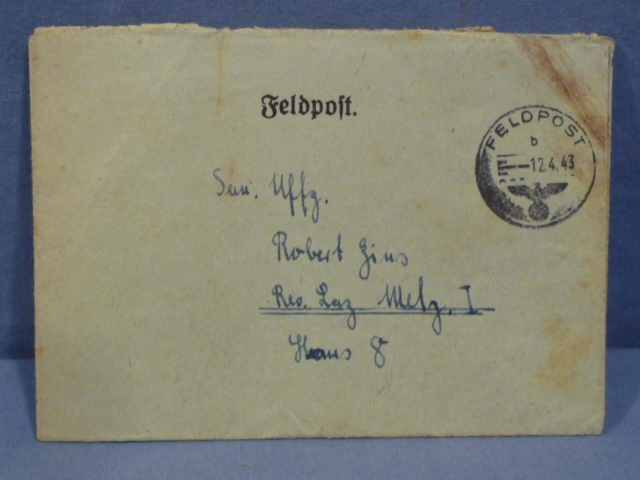 Feldpost.
FELDPOST
b
-12.4.43
San. Uffz.
Robert Zins
Res. Laz Metz. I
Haus 8